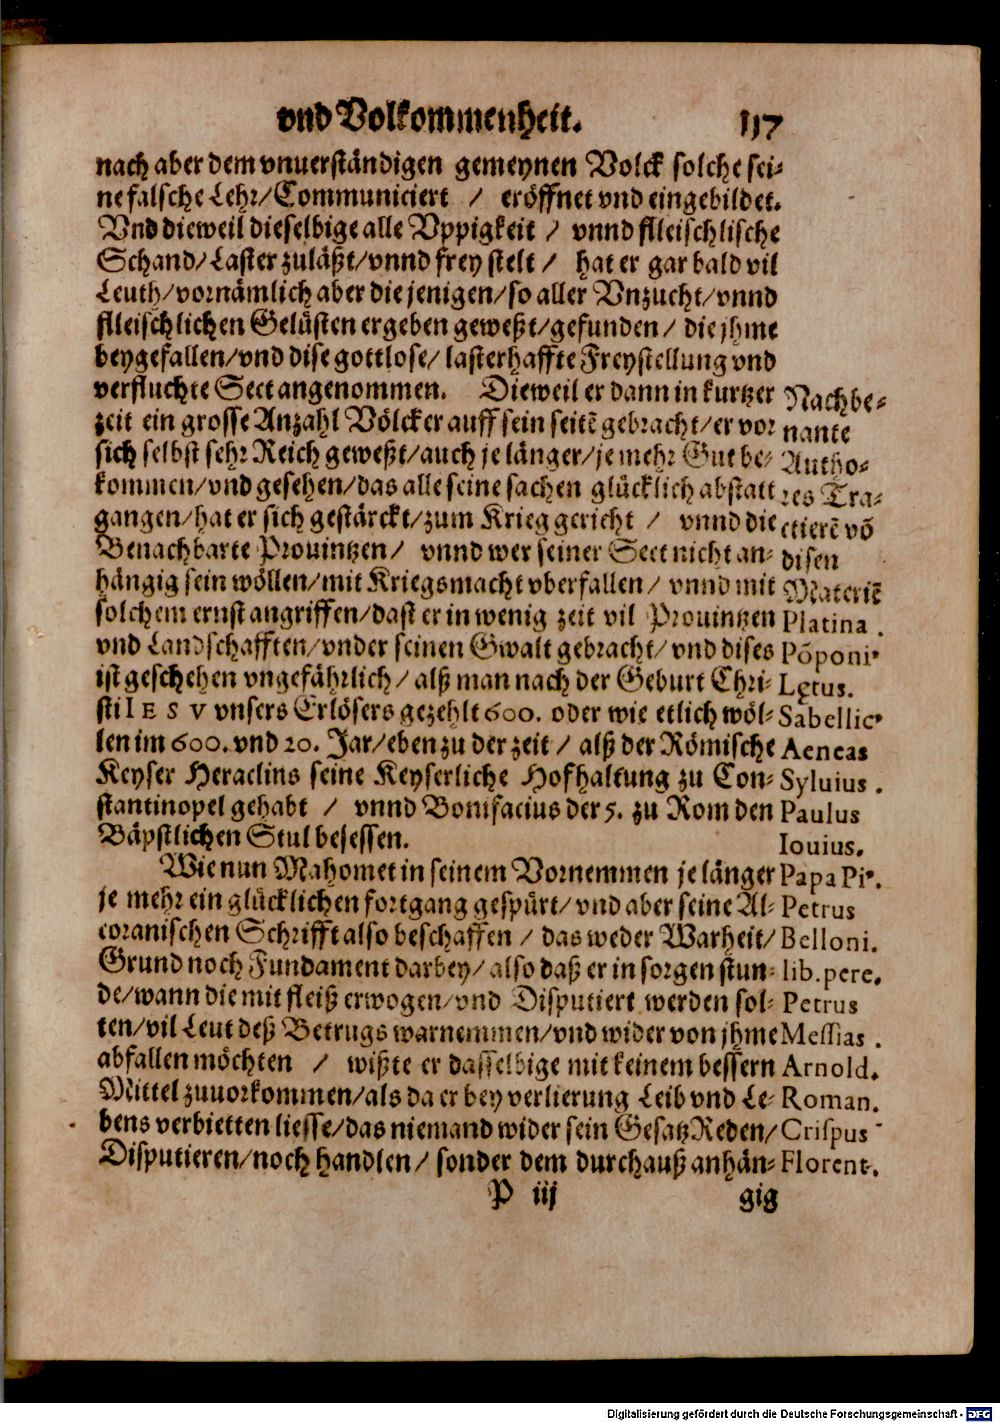 vnd Volkommenheit. 117
nach aber dem vnuerständigen gemeynen Volck solche sei-
ne falsche Lehr/Communiciert / eröffnet vnd eingebildet.
Vnd dieweil dieselbige alle Vppigkeit / vnnd fleischlische
Schand/Laster zuläßt/vnnd frey stelt / hat er gar bald vil
Leuth/vornämlich aber die jenigen/so aller Vnzucht/vnnd
fleischlichen Gelüsten ergeben geweßt/gefunden / die jhme
beygefallen/vnd dise gottlose/ lasterhaffte Freystellung vnd
verfluchte Sect angenommen. Dieweil er dann in kurtzer
zeit ein grosse Anzahl Völcker auff sein seitẽ gebracht/er vor
sich selbst sehr Reich geweßt/auch je länger/je mehr Gut be-
kommen/vnd gesehen/das alle seine sachen glücklich abstatt
gangen/hat er sich gestärckt/zum Krieg gericht / vnnd die
Benachbarte Prouintzen/ vnnd wer seiner Sect nicht an-
hängig sein wöllen/mit Kriegsmacht vberfallen/ vnnd mit
solchem ernst angriffen/dast er in wenig zeit vil Prouintzen
vnd Landschafften/vnder seinen Gwalt gebracht/ vnd dises
ist geschehen vngefährlich/ alß man nach der Geburt Chri-
sti IESV vnsers Erlösers gezehlt 600. oder wie etlich wöl-
len im 600. vnd 20. Jar/eben zu der zeit / alß der Römische
Keyser Heraclius seine Keyserliche Hofhaltung zu Con-
stantinopel gehabt / vnnd Bonifacius der 5. zu Rom den
Bäpstlichen Stul besessen.
Wie nun Mahomet in seinem Vornemmen je länger
je mehr ein glücklichen fortgang gespürt/ vnd aber seine Al-
coranischen Schrifft also beschaffen / das weder Warheit/
Grund noch Fundament darbey/ also daß er in sorgen stun-
de/wann die mit fleiß erwogen/vnd Disputiert werden sol-
ten/vil Leut deß Betrugs warnemmen/vnd wider von jhme
abfallen möchten / wißte er dasselbige mit keinem bessern
Mittel zuuorkommen/als da er bey verlierung Leib vnd Le-
bens verbietten liesse/das niemand wider sein Gesatz Reden/
Disputieren/noch handlen/ sonder dem durchauß anhän-
P iij gig
Nachbe-
nante
Autho-
res Tra-
ctierẽ võ
disen
Materiẽ
Platina.
Põponi⁹
Lętus.
Sabellic⁹
Aeneas
Syluius.
Paulus
Iouius.
Papa Pi⁹.
Petrus
Belloni.
lib. pere.
Petrus
Messias.
Arnold.
Roman.
Crispus
Florent.
Digitalisierung gefördert durch die Deutsche Forschungsgemeinschaft - DFG